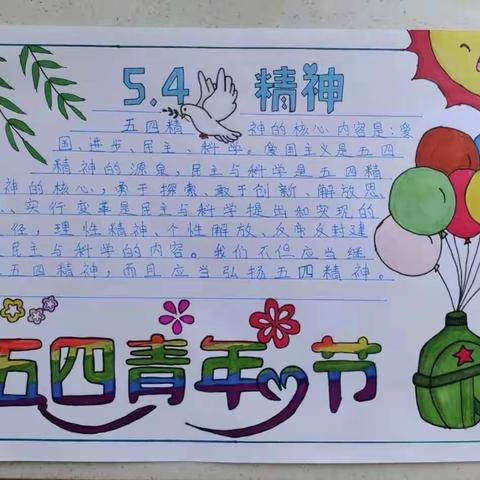 5.4 精神
五四精 神的核心内容是:爱
国、进步、民主、科学。爱国主义是五四
精神的源泉,民主与科学是五四精
神的核心,索于探索、敢于创新、解放思
、实行变革是民主与科学提出和实现的
径,理性精神、个性解放、反帝反封建
民主与科学的内容。我们不但应当继
五四精神,而且应当弘扬五四精神。
五四青年节